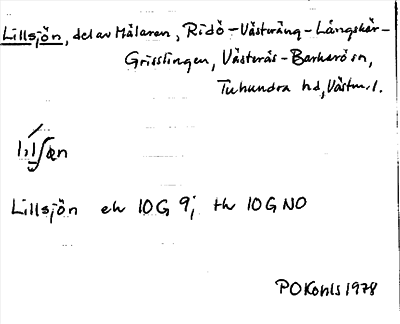 Lillsjön, del av Mälaren, Ridö-Västeräng-Långskär-
Grisslingen, Västerås-Barkarö sn,
Tuhundra hd, Västm. l.
Lillsjön ek 10G 9j th 10G NO
PO Kohls 1978